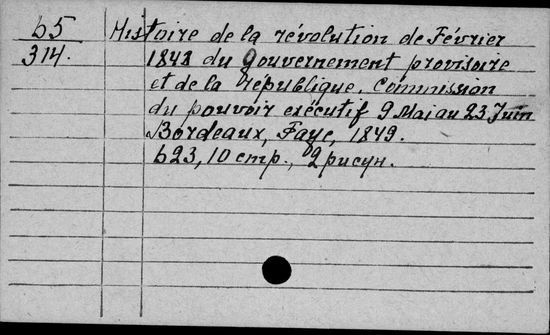 65
314.
Histoire de la révolution de Février
1848 du Gouvernement provisoire
et de la république. Commission
du pouvoir exécutif 9 Mai au 23 Juin
Bordeaux, Faye, 1849.
623, 10 стр., 2 рисун.